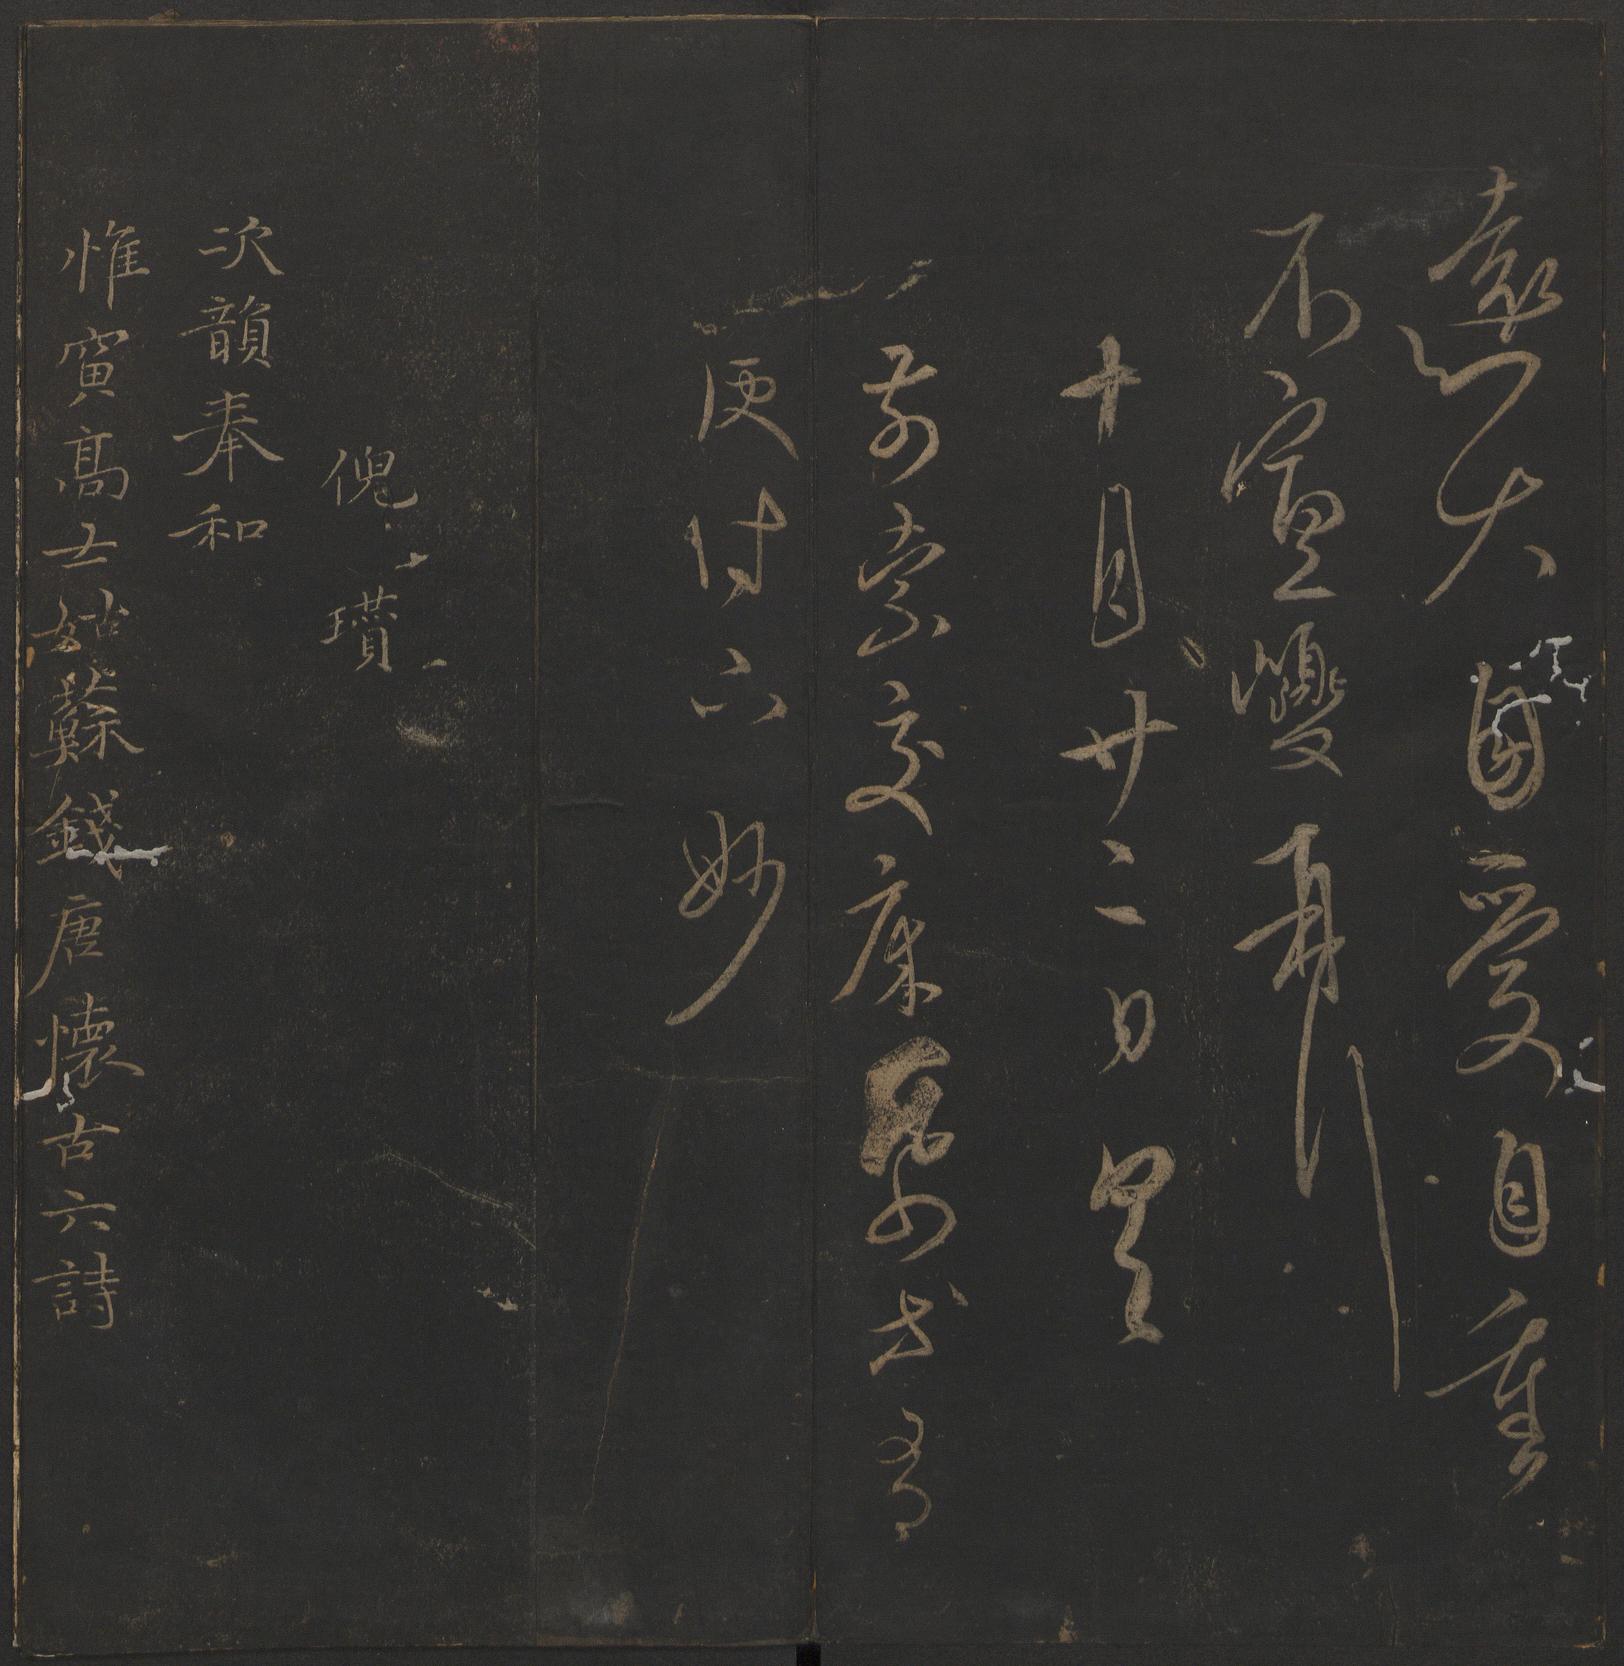 遠大自愛自重
不宣巙再拜
十月廿二日
前索交床
便付下妙
倪瓚
次韻奉和
惟寅高士姑蘇錢唐懷古六詩